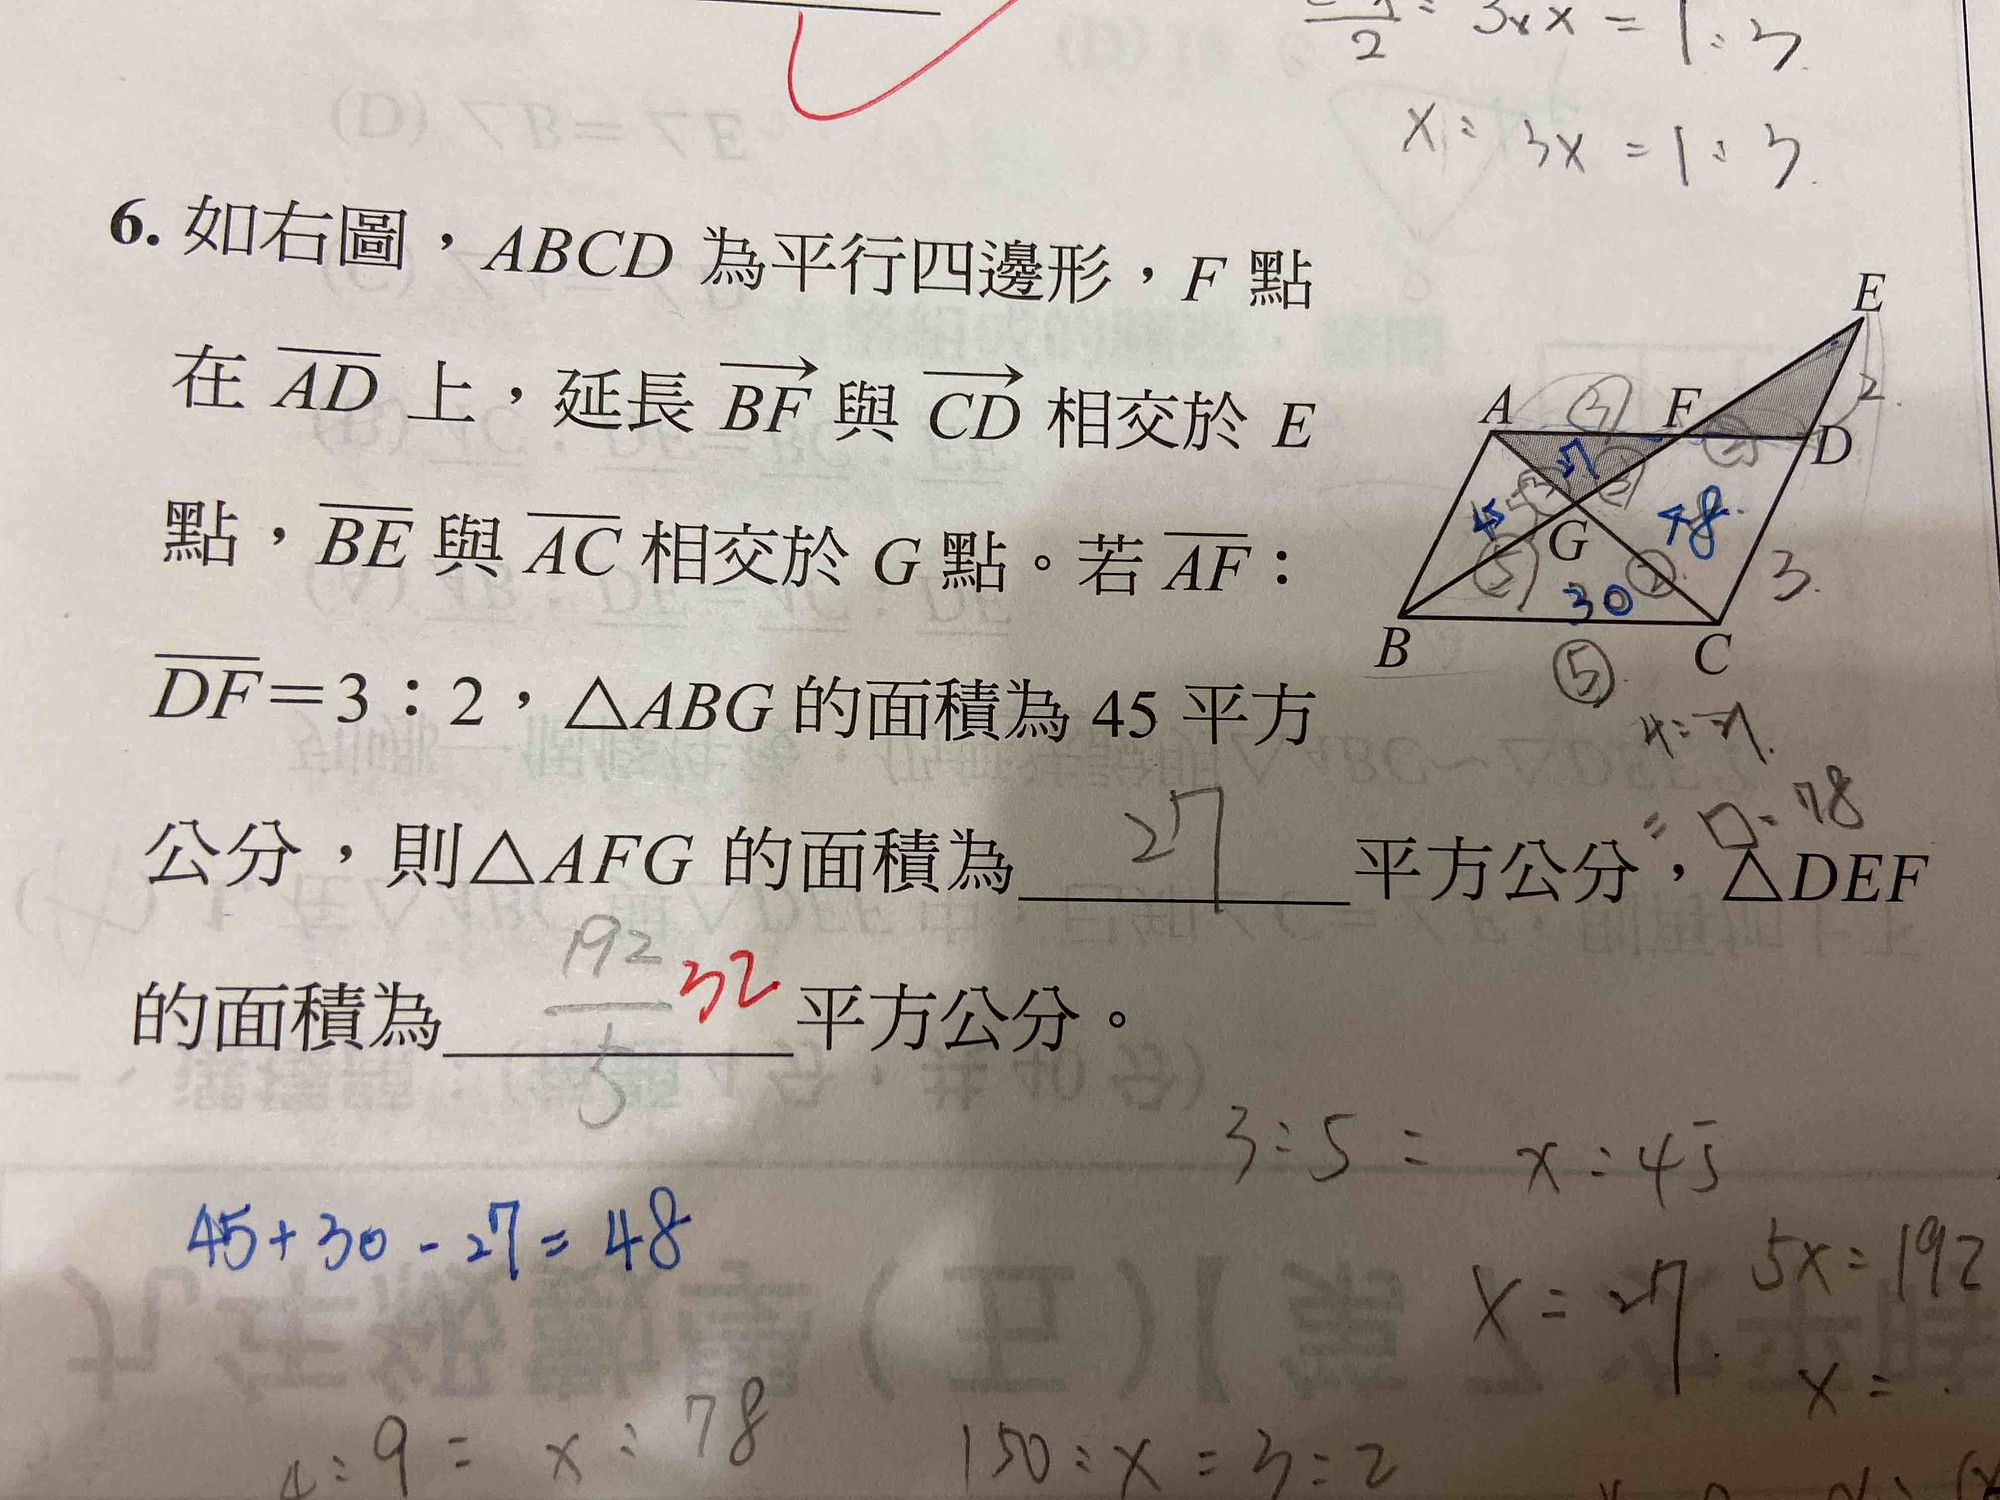 2 : 3x x = 1 : 3
x : 3x = 1 : 3
6. 如右圖，ABCD 為平行四邊形，F 點
在 AD 上，延長 BF 與 CD 相交於 E
點，BE 與 AC 相交於 G 點。若 AF：
DF=3：2，△ABG 的面積為 45 平方
公分，則△AFG 的面積為 27 平方公分，△DEF
的面積為 192/5 32 平方公分。
E
2
A ③ F ② D
27
45 48
G
⑤ 30 3
B ⑤ C
78
3 : 5 = x : 45
45 + 30 - 27 = 48
x = 27
5x = 192
x =
4 : 9 = x : 78
150 : x = 3 : 2